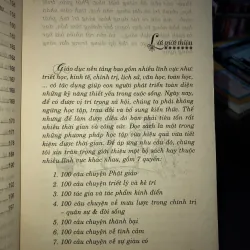 Lời giới thiệu
Giáo dục nền tảng bao gồm nhiều lĩnh vực như
triết học, kinh tế, chính trị, lịch sử, văn học, toán học,
... có tác dụng giúp con người phát triển toàn diện
những kỹ năng thiết yếu trong cuộc sống. Ngày nay,
để có được vị trí trong xã hội, chúng ta phải không
ngừng học tập, trau dồi và bổ sung kiến thức. Thế
nhưng để làm được điều đó bạn phải tiêu tốn rất
nhiều thời gian và công sức. Đọc sách là một trong
những phương pháp học tập có hiệu quả vừa tiết
kiệm được thời gian. Để đáp ứng nhu cầu đó, chúng
tôi xin trân trọng giới thiệu một bộ sách hay thuộc
nhiều lĩnh vực khác nhau, gồm 7 quyển:
1. 100 câu chuyện Phật giáo
2. 100 câu chuyện triết lý và kẻ trí
3. 100 tác gia và tác phẩm kinh điển
4. 100 câu chuyện về mưu lược trong chính trị
- quân sự & đời sống
5. 100 câu chuyện thành bại
6. 100 câu chuyện về tình cảm
7. 100 câu chuyện về sự giàu có